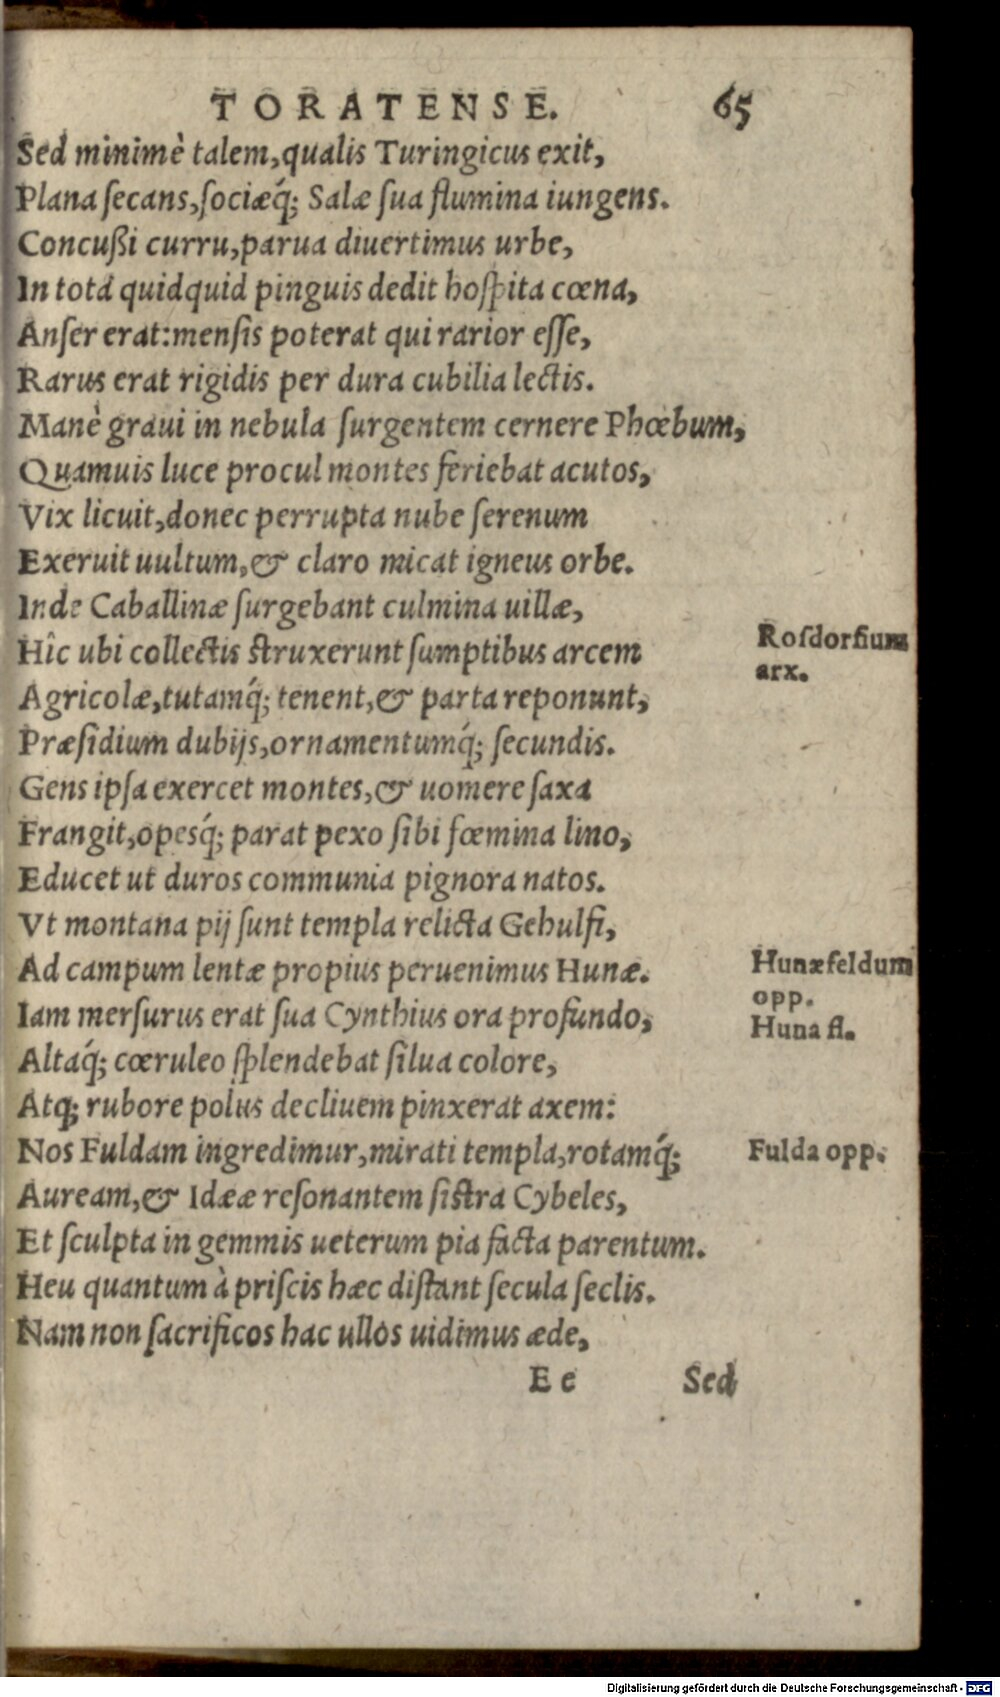 TORATENSE. 65
Sed minimè talem, qualis Turingicus exit,
Plana ſecans, ſociæq́; Salæ ſua flumina iungens.
Concußi curru, parua diuertimus urbe,
In tota quidquid pinguis dedit hoſpita cœna,
Anſer erat: menſis poterat qui rarior eſſe,
Rarus erat rigidis per dura cubilia lectis.
Manè graui in nebula ſurgentem cernere Phœbum,
Quamuis luce procul montes feriebat acutos,
Vix licuit, donec perrupta nube ſerenum
Exeruit uultum, & claro micat igneus orbe.
Inde Caballinæ ſurgebant culmina uillæ,
Hîc ubi collectis ſtruxerunt ſumptibus arcem
Roſdorfium
arx.
Agricolæ, tutamq́; tenent, & parta reponunt,
Præſidium dubijs, ornamentumq́; ſecundis.
Gens ipſa exercet montes, & uomere ſaxa
Frangit, opesq́; parat pexo ſibi fœmina lino,
Educet ut duros communia pignora natos.
Vt montana pij ſunt templa relicta Gehulfi,
Ad campum lentæ propius peruenimus Hunæ.
Hunæfeldum
opp.
Huna fl.
Iam merſurus erat ſua Cynthius ora profundo,
Altaq́; cœruleo ſplendebat ſilua colore,
Atq; rubore polus decliuem pinxerat axem:
Nos Fuldam ingredimur, mirati templa, rotamq́;
Fulda opp.
Auream, & Idææ reſonantem ſiſtra Cybeles,
Et ſculpta in gemmis ueterum pia facta parentum.
Heu quantum à priſcis hæc diſtant ſecula ſeclis.
Nam non ſacrificos hac ullos uidimus æde,
Ee Sed
Digitalisierung gefördert durch die Deutsche Forschungsgemeinschaft - DFG